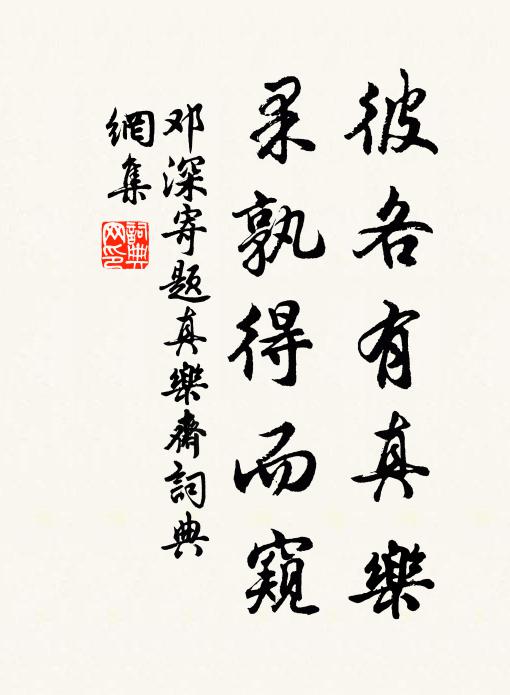 彼各有真樂
果孰得而窺
邓深寄題真樂齋詞典
網集
詞典
网印